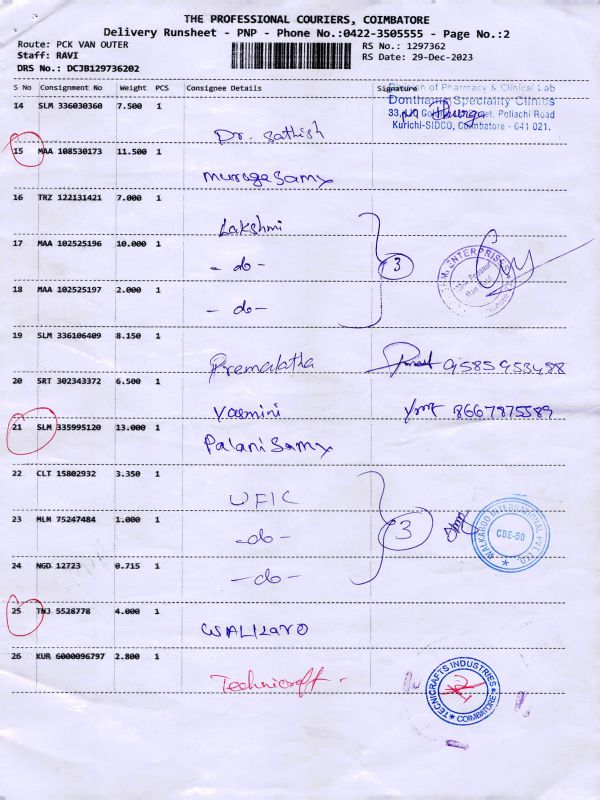 THE PROFESSIONAL COURIERS, COIMBATORE
Delivery Runsheet - PNP - Phone No.:0422-3505555 - Page No.:2
Route: PCK VAN OUTER
Staff: RAVI
DRS No.: DCJB129736202
RS No.: 1297362
RS Date: 29-Dec-2023
S No Consignment No Weight PCS Consignee Details Signature
Division of Pharmacy & Clinical Lab
Donthams Speciality Clinics
Pollachi Road
Kurichi-SIDCO, Coimbatore - 641 021.
14 SLM 336030360 7.500 1
Dr. Sathish
15 MAA 108530173 11.500 1
Murugasamy
16 TRZ 122131421 7.000 1
Lakshmi
17 MAA 102525196 10.000 1
- do -
3
ENTERPRISES
18 MAA 102525197 2.000 1
- do -
19 SLM 336106409 8.150 1
Premalatha 9585953488
20 SRT 302343372 6.500 1
Yasmini 8667875589
21 SLM 335995120 13.000 1
Palanisamy
22 CLT 15802932 3.350 1
UFIC
23 MLM 75247484 1.000 1
-do-
3
WALKAROO INTERNATIONAL PVT. LTD.
CBE-50
24 NGD 12723 0.715 1
-do-
25 TNJ 5528778 4.000 1
WALKARO
26 KUR 6000096797 2.800 1
Technicraft.
TECNICRAFTS INDUSTRIES
COIMBATORE